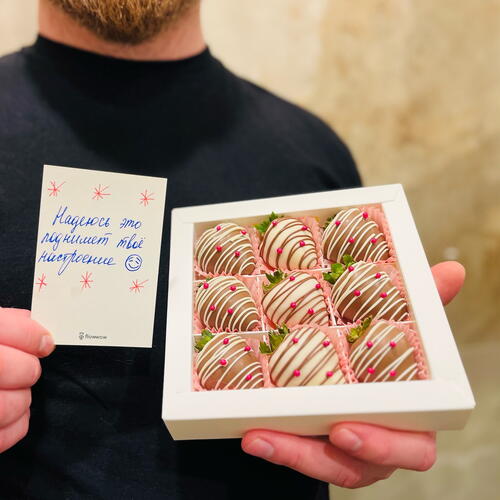 Надеюсь это
поднимет твоё
настроение
flowwow